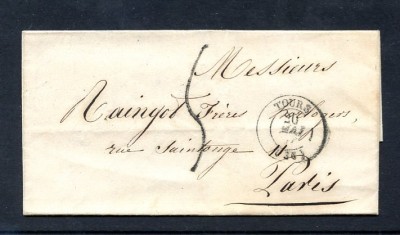 Messieurs
Raingot Frères
rue Saintonge 11
Paris
5
TOURS
20
MAI
(36)